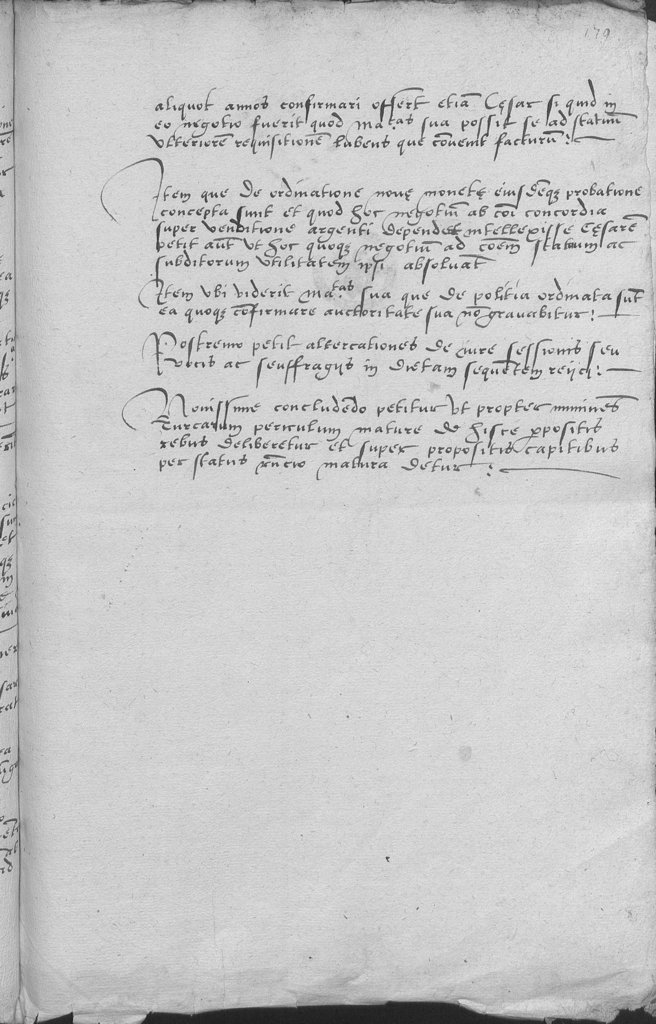 179
aliquot annos confirmari offert etiā Cęsar si quid in
eo negotio fuerit quod Ma.tas sua possit se ad statuū
ulteriorē requisitionē lubens que cōvenit facturū :
Item que de ordinatione novę monetę eiusdēqꝫ probatione
concepta sunt et quod hoc negotiū ab cōi concordia
super venditione argenti dependet intellexisse Cęsarē
petit aūt ut hoc quoqꝫ negotiū ad cōem statuum ac
subditorum utilitatem ipsi absoluāt
Item ubi viderit Ma.tas sua que de politia ordinata sūt
ea quoqꝫ cōfirmare auctoritate sua nō gravabitur :
Postremo petit altercationes de iure sessionis seu
vocis ac seuffragijs in dietam sequētem reijci :
Novissime concludēdo petitur ut propter iminēs
Turcarum periculum mature de hisce ꝓpositis
rebus deliberetur et super propositis capitibus
per status matura detur :